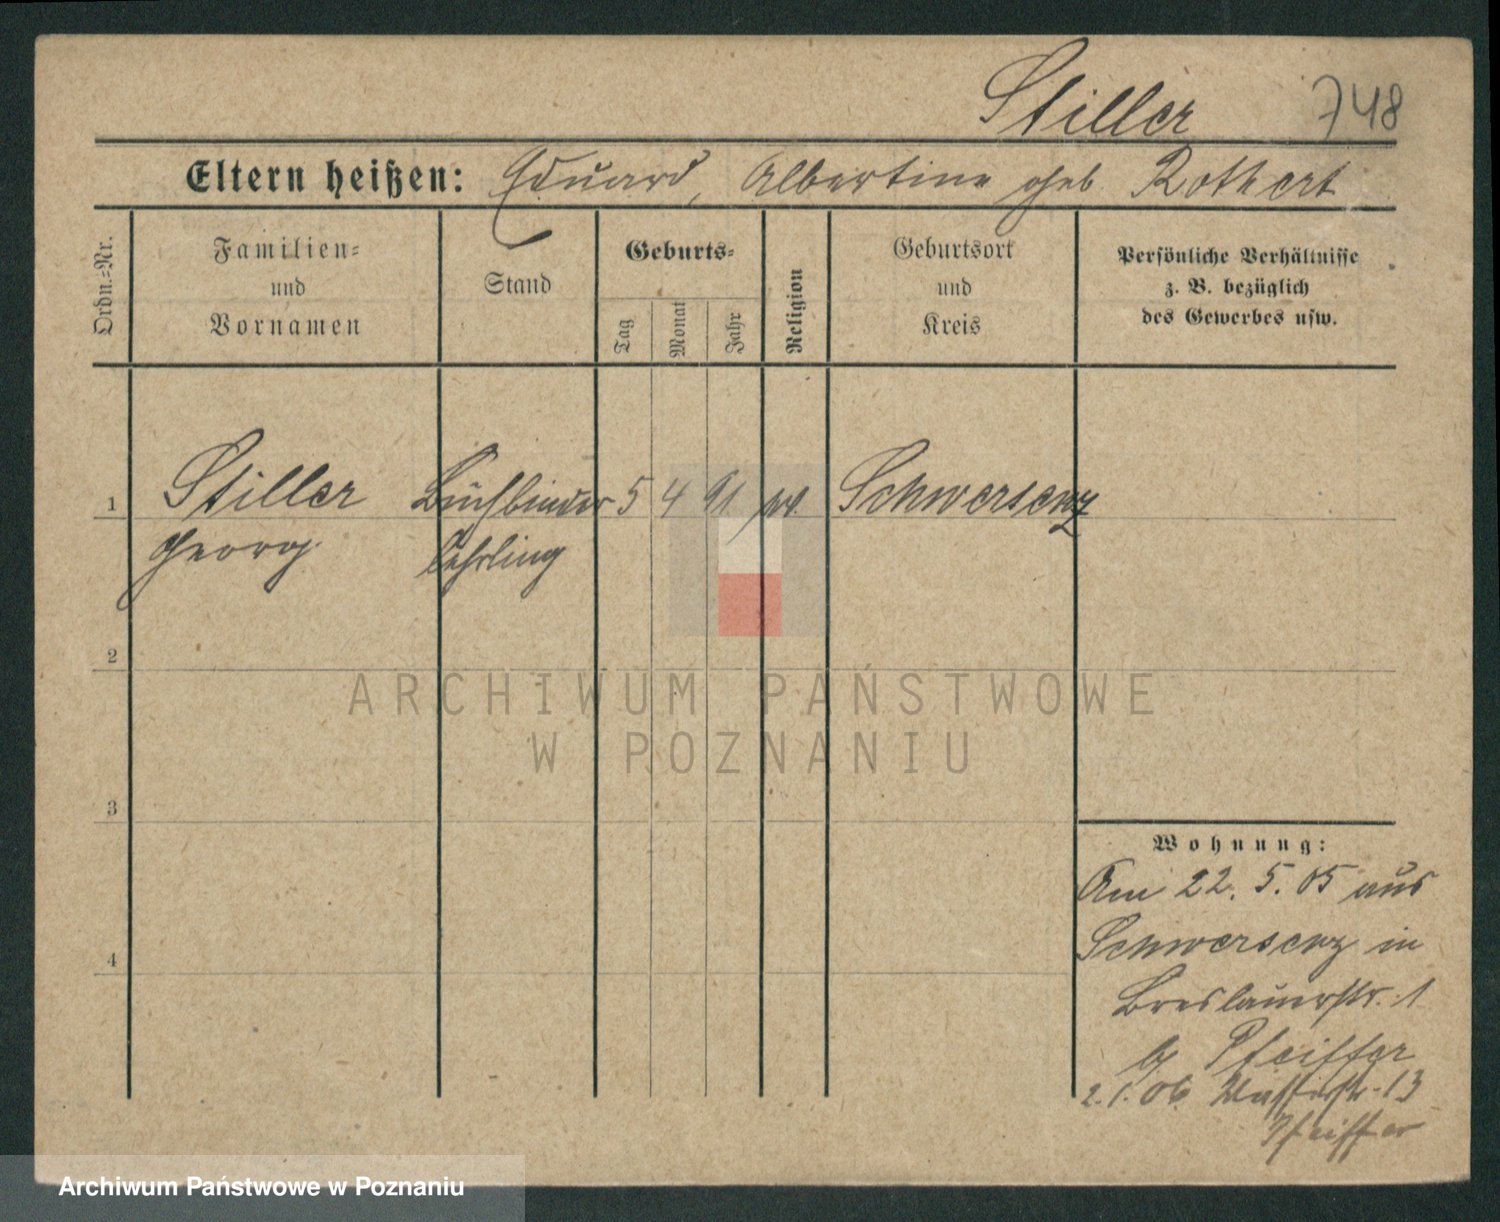 Stiller 748
Eltern heißen: Eduard, Albertine geb. Rothert
Ordn.=Nr.
Familien=
und
Vornamen
Stand
Geburts=
Tag
Monat
Jahr
Religion
Geburtsort
und
Kreis
Persönliche Verhältnisse
z. B. bezüglich
des Gewerbes usw.
1 Stiller Buchbinder 5 4 91 Schwersenz
Georg Lehrling
2
3
4
Wohnung:
Am 22. 5. 05 aus
Schwersenz in
Breslauerstr. 1
b/ Pfeiffer
2.1.06. 13
Pfeiffer
ARCHIWUM PAŃSTWOWE
W POZNANIU
Archiwum Państwowe w Poznaniu